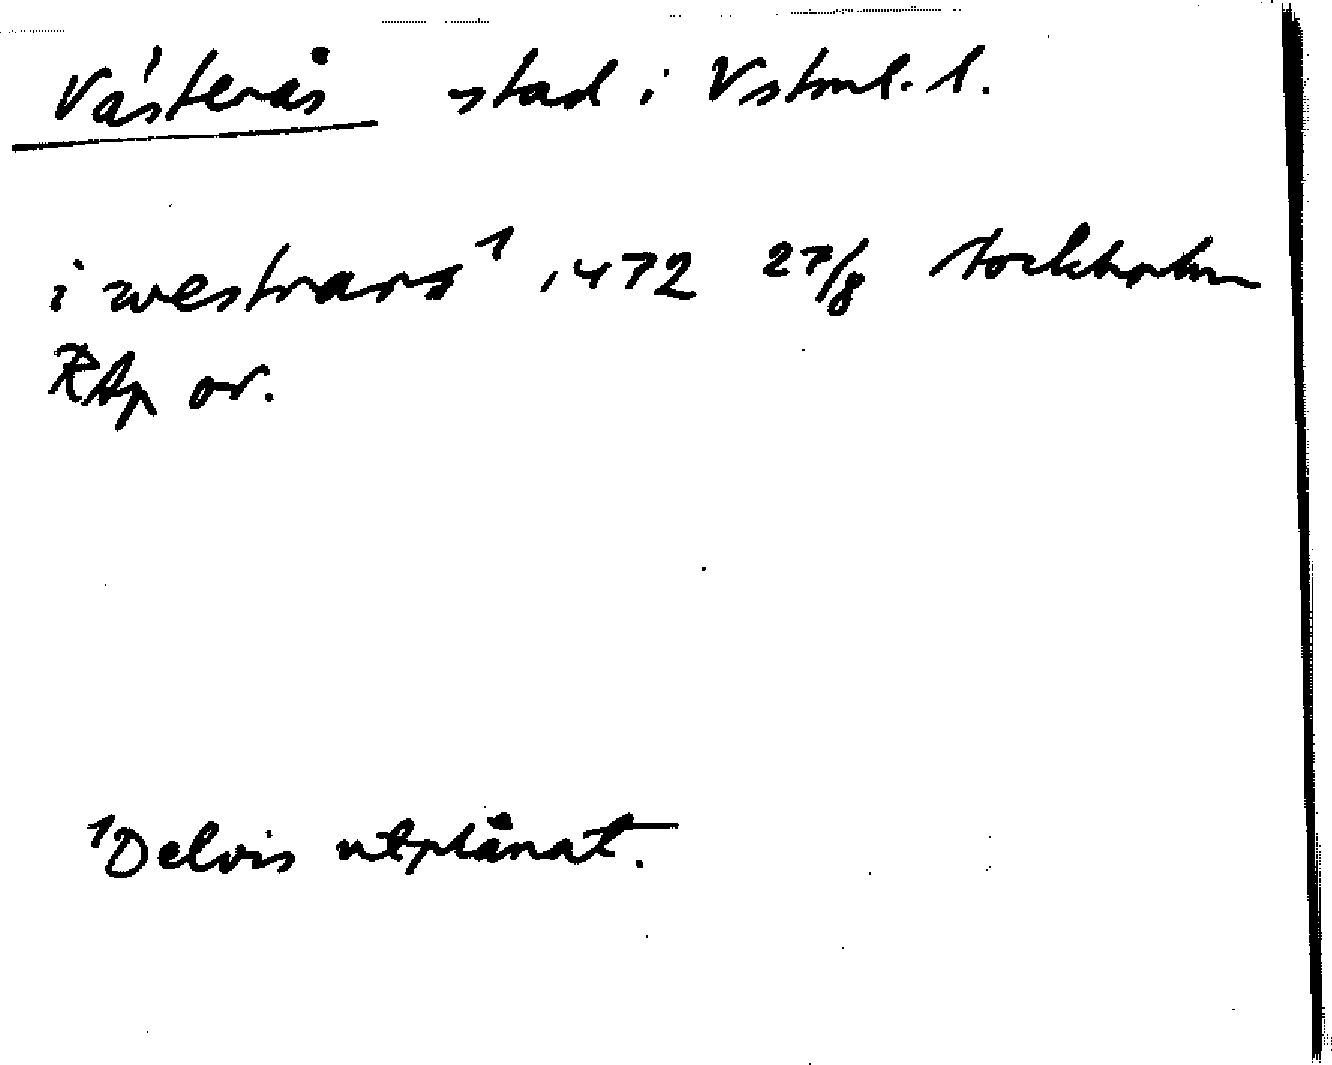 Västerås stad i Vstml. l.
i westrars¹ 1472 27/8 Stockholm
RAp or.
¹Delvis utplånat.